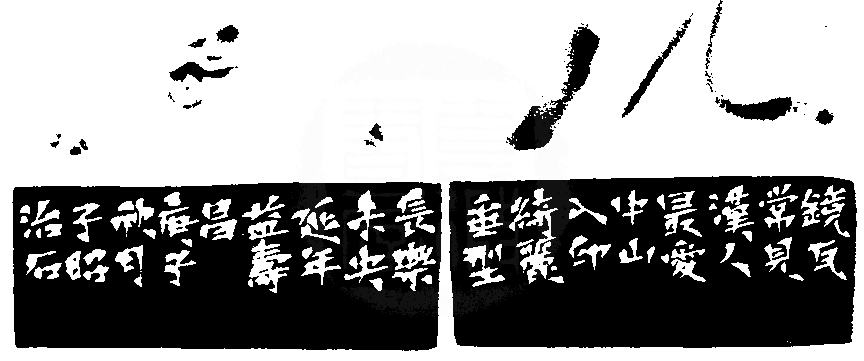 鏡瓦
常見
漢人
最愛
中山
入印
綺麗
垂型
長樂
未央
延年
益壽
昌
庚子
秋月
子昭
治石